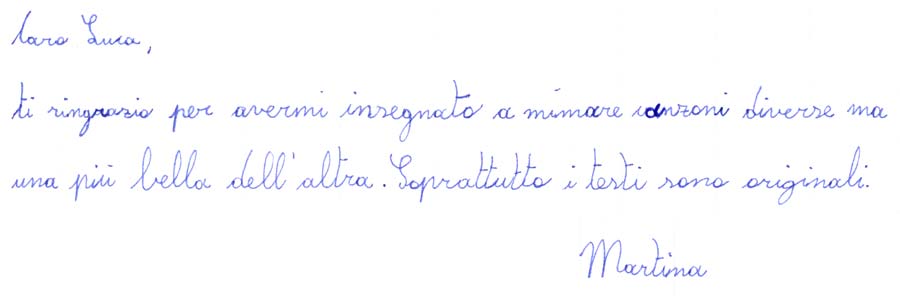 Caro Luca,
ti ringrazio per avermi insegnato a mimare canzoni diverse ma
una più bella dell'altra. Soprattutto i testi sono originali.
Martina